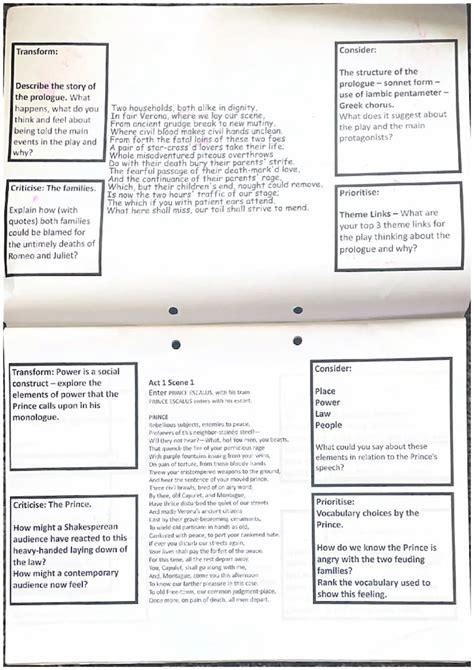 Transform:
Describe the story of
the prologue. What
happens, what do you
think and feel about
being told the main
events in the play and
why?
Two households, both alike in dignity,
In fair Verona, where we lay our scene,
From ancient grudge break to new mutiny,
Where civil blood makes civil hands unclean.
From forth the fatal loins of these two foes
A pair of star-cross'd lovers take their life;
Whole misadventured piteous overthrows
Do with their death bury their parents' strife.
The fearful passage of their death-mark'd love,
And the continuance of their parents' rage,
Which, but their children's end, nought could remove,
Is now the two hours' traffic of our stage;
The which if you with patient ears attend,
What here shall miss, our toil shall strive to mend.
Consider:
The structure of the
prologue – sonnet form –
use of iambic pentameter –
Greek chorus.
What does it suggest about
the play and the main
protagonists?
Criticise: The families.
Explain how (with
quotes) both families
could be blamed for
the untimely deaths of
Romeo and Juliet?
Prioritise:
Theme Links – What are
your top 3 theme links for
the play thinking about the
prologue and why?
Transform: Power is a social
construct – explore the
elements of power that the
Prince calls upon in his
monologue.
Act 1 Scene 1
Enter PRINCE ESCALUS, with his train
PRINCE ESCALUS enters with his escort.
PRINCE
Rebellious subjects, enemies to peace,
Profaners of this neighbor-stained steel!—
Will they not hear?—What, ho! You men, you beasts,
That quench the fire of your pernicious rage
With purple fountains issuing from your veins,
On pain of torture, from those bloody hands
Throw your mistempered weapons to the ground,
And hear the sentence of your moved prince.
Three civil brawls, bred of an airy word,
By thee, old Capulet, and Montague,
Have thrice disturbed the quiet of our streets
And made Verona's ancient citizens
Cast by their grave-beseeming ornaments,
To wield old partisans in hands as old,
Cankered with peace, to part your cankered hate.
If ever you disturb our streets again,
Your lives shall pay the forfeit of the peace.
For this time, all the rest depart away.
You, Capulet, shall go along with me,
And, Montague, come you this afternoon
To know our farther pleasure in this case,
To old Free-town, our common judgment-place.
Once more, on pain of death, all men depart.
Consider:
Place
Power
Law
People
What could you say about these
elements in relation to the Prince's
speech?
Criticise: The Prince.
How might a Shakesperean
audience have reacted to this
heavy-handed laying down of
the law?
How might a contemporary
audience now feel?
Prioritise:
Vocabulary choices by the
Prince.
How do we know the Prince is
angry with the two feuding
families?
Rank the vocabulary used to
show this feeling.